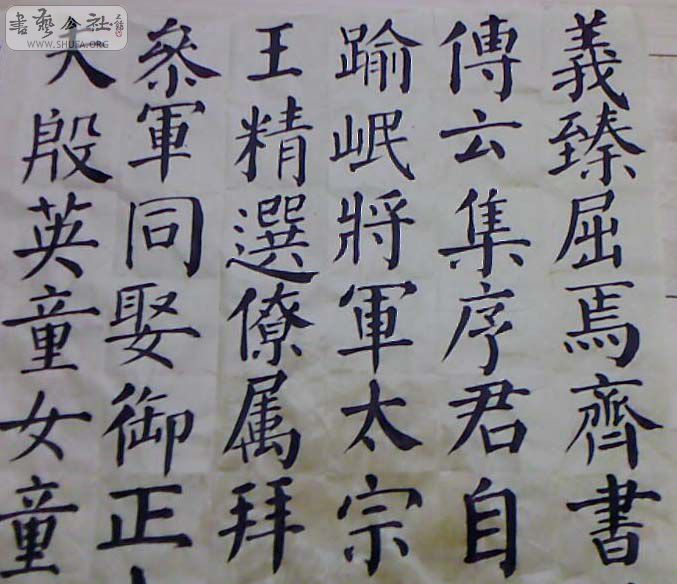 義臻屈焉齊書
傳云集序君自
踰岷將軍太宗
王精選僚属拜
叅軍同娶御正
夫殷英童女童
書藝公社
WWW.SHUFA.ORG